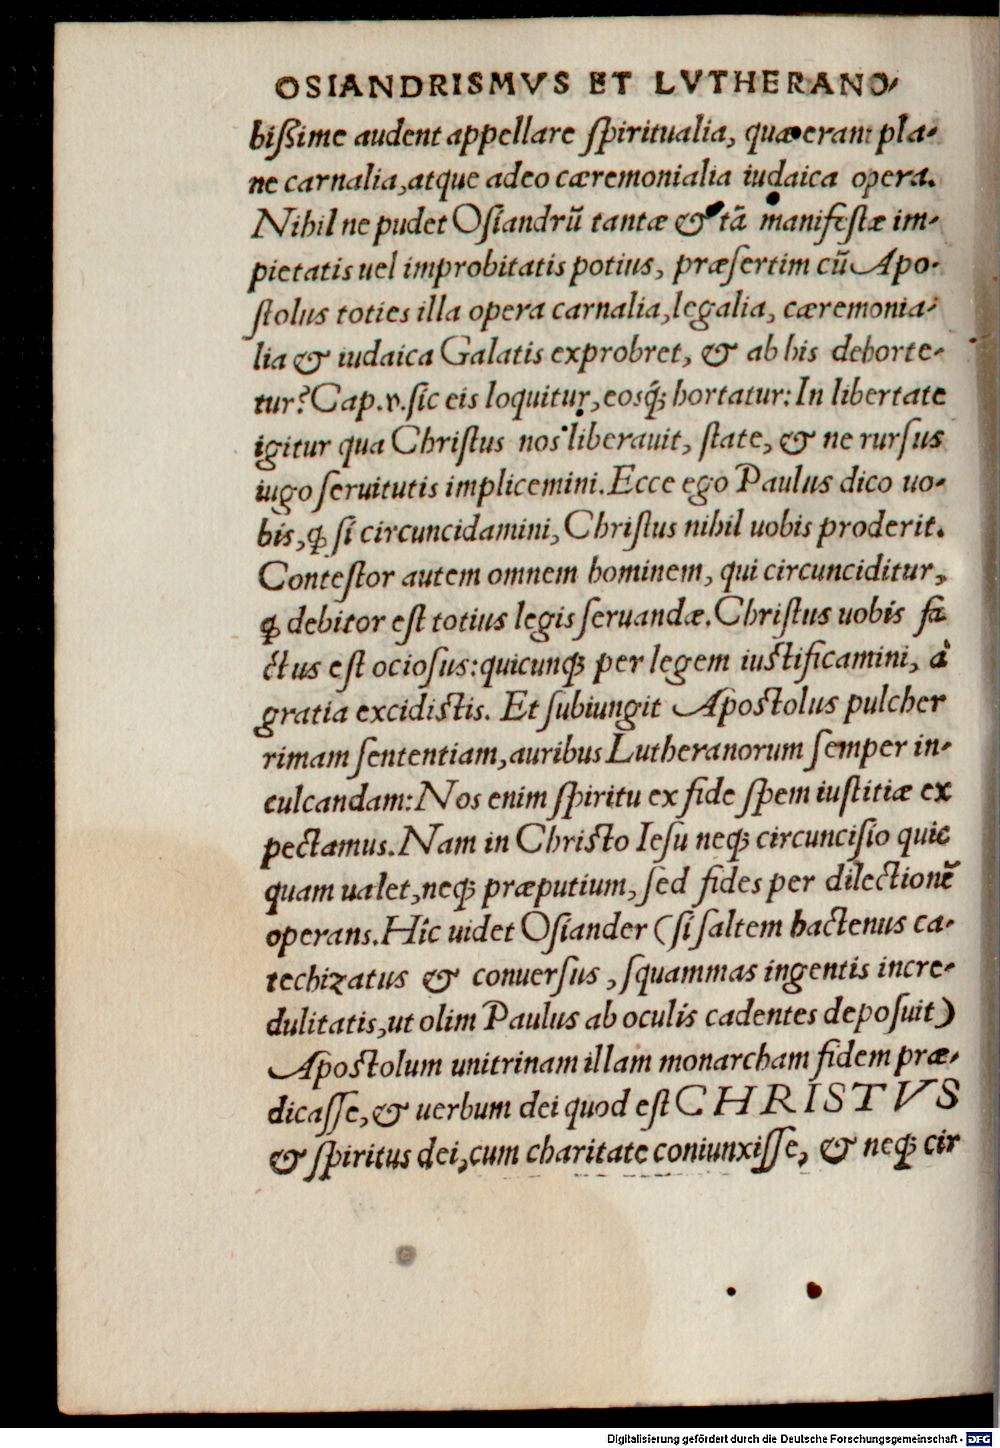 OSIANDRISMVS ET LVTHERANO-
bißime audent appellare spiritualia, quæ erant pla-
ne carnalia, atque adeo cæremonialia iudaica opera.
Nihil ne pudet Osiandrũ tantæ & tã manifestæ im-
pietatis uel improbitatis potius, præsertim cũ Apo-
stolus toties illa opera carnalia, legalia, cæremonia-
lia & iudaica Galatis exprobret, & ab his dehorte-
tur? Cap.v. sic eis loquitur, eosq́; hortatur: In libertate
igitur qua Christus nos liberauit, state, & ne rursus
iugo seruitutis implicemini. Ecce ego Paulus dico uo-
bis, ꝙ si circuncidamini, Christus nihil uobis proderit.
Contestor autem omnem hominem, qui circunciditur,
ꝙ debitor est totius legis seruandæ. Christus uobis fa
ctus est ociosus: quicunq; per legem iustificamini, à
gratia excidistis. Et subiungit Apostolus pulcher
rimam sententiam, auribus Lutheranorum semper in-
culcandam: Nos enim spiritu ex fide spem iustitiæ ex
pectamus. Nam in Christo Iesu neq; circuncisio quic
quam ualet, neq; præputium, sed fides per dilectionẽ
operans. Hîc uidet Osiander (si saltem hactenus ca-
techizatus & conuersus, squammas ingentis incre-
dulitatis, ut olim Paulus ab oculis cadentes deposuit)
Apostolum unitrinam illam monarcham fidem præ-
dicasse, & uerbum dei quod est CHRISTVS
& spiritus dei, cum charitate coniunxisse, & neq; cir
Digitalisierung gefördert durch die Deutsche Forschungsgemeinschaft - DFG